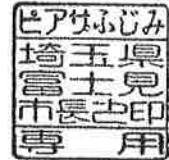 ピアザふじみ
埼玉県
富士見
市長之印
専用